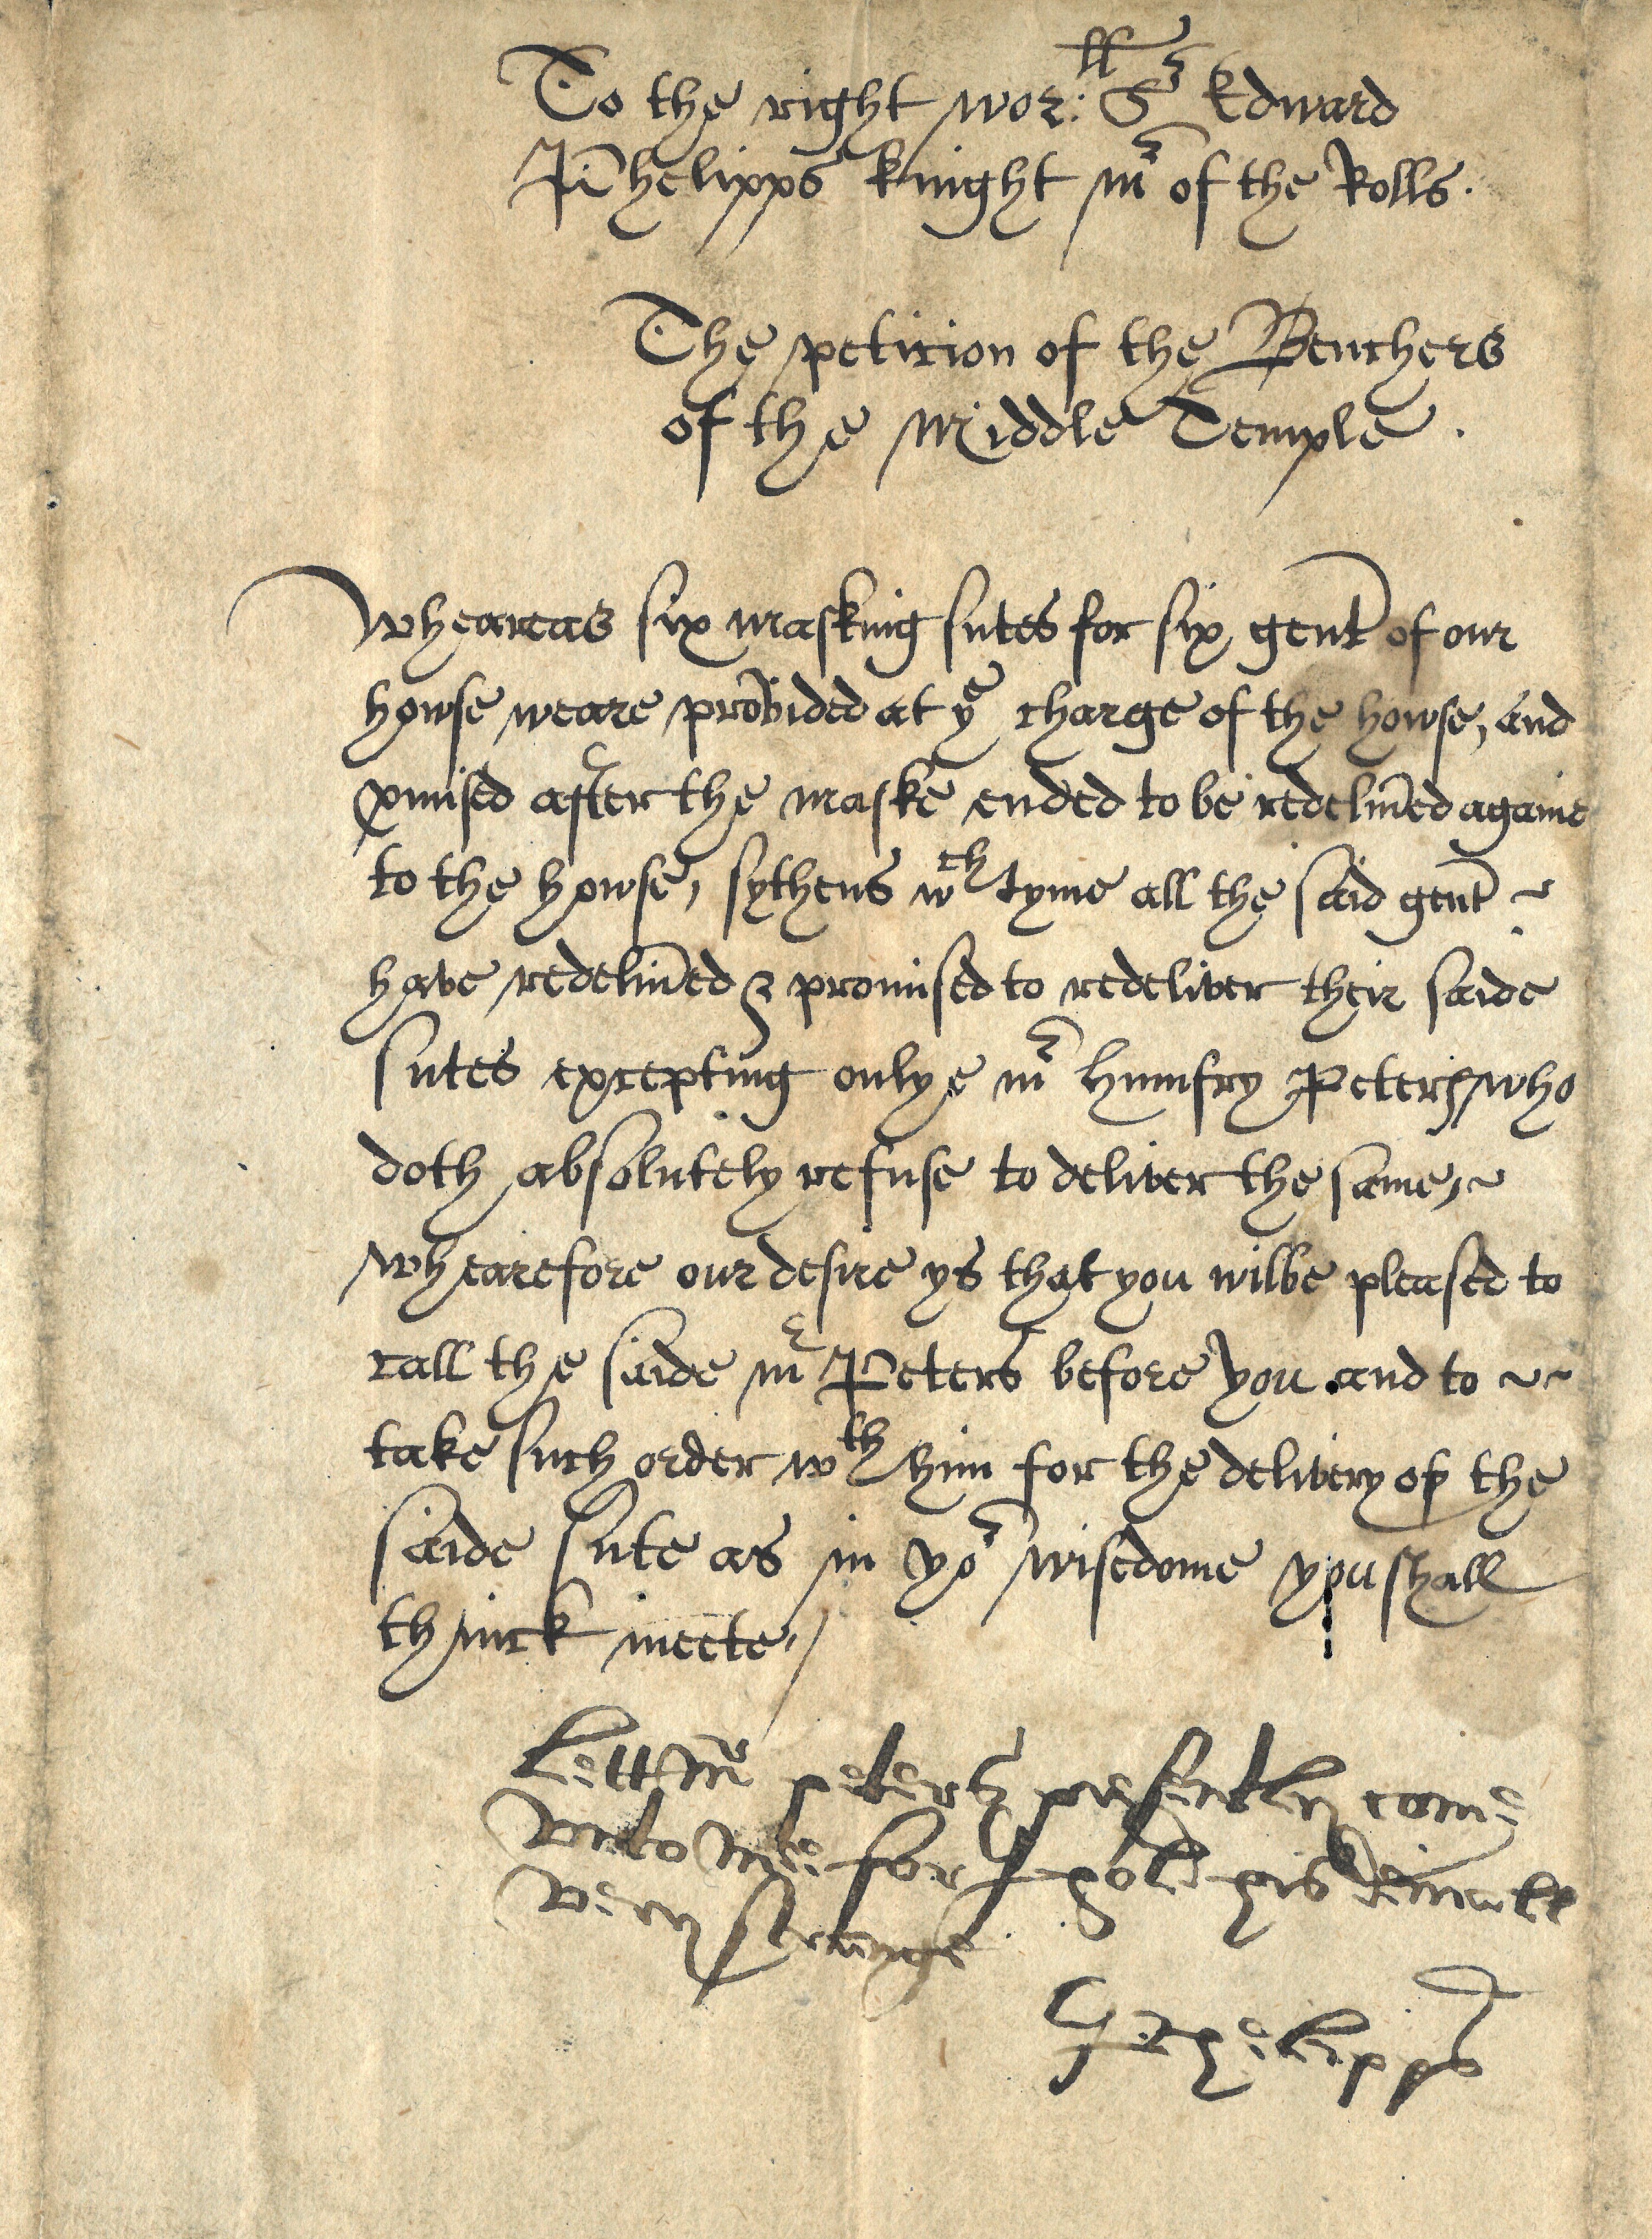 To the right wor:ll Sr Edward
Phelipps knight mr of the Rolls.
The peticion of the Benchers
of the Middle Temple.
Wheareas six masking sutes for six gent of our
howse weare provided at ye charge of the howse, and
pmised after the maske ended to be redelived againe
to the howse, sythens wch tyme all the said gent
have redelived & promised to redeliver their saide
sutes excepting onlye mr Humfry Peters who
doth absolutely refuse to deliver the same,
Whearefore our desire ys that you wilbe pleased to
call the saide mr Peters before you and to
take such order wth him for the delivery of the
saide sute as in yor wisedome you shall
thinck meete./
Lett mr peters presently come
unto me for I hold his deniall
very strange
E Phelipps